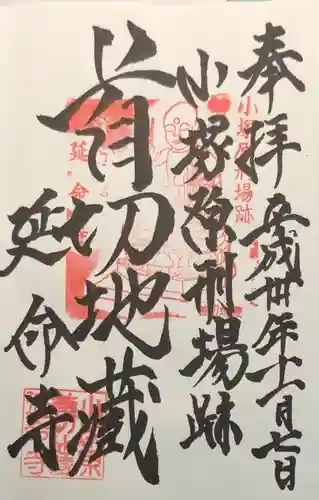 奉拝 平成卅年十一月七日
小塚原刑場跡
首切地蔵
延命寺
小塚原刑場跡
延命